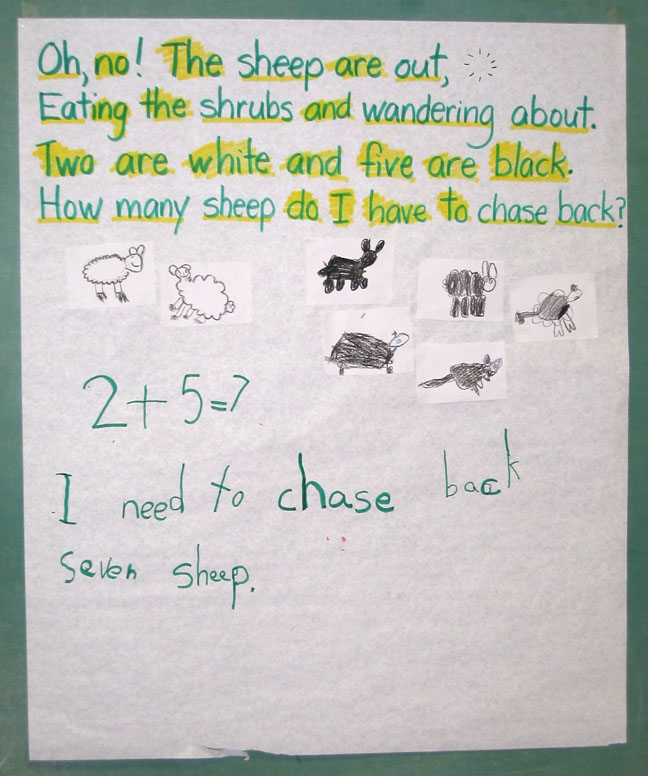 Oh, no! The sheep are out,
Eating the shrubs and wandering about.
Two are white and five are black.
How many sheep do I have to chase back?
2+5=7
I need to chase back
seven sheep.